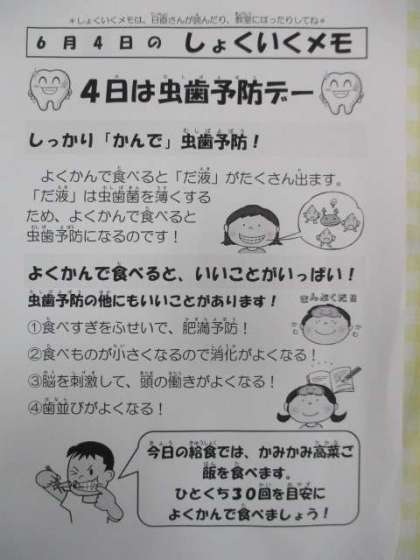 ＊しょくいくメモは、日直さんが読んだり、教室にはったりしてね＊
6月4日の しょくいくメモ
4日は虫歯予防デー
しっかり「かんで」虫歯予防！
よくかんで食べると「だ液」がたくさん出ます。
「だ液」は虫歯菌を薄くする
ため、よくかんで食べると
虫歯予防になるのです！
よくかんで食べると、いいことがいっぱい！
虫歯予防の他にもいいことがあります！
①食べすぎをふせいで、肥満予防！
②食べものが小さくなるので消化がよくなる！
③脳を刺激して、頭の働きがよくなる！
④歯並びがよくなる！
今日の給食では、かみかみ高菜ご
飯を食べます。
ひとくち30回を目安に
よくかんで食べましょう！